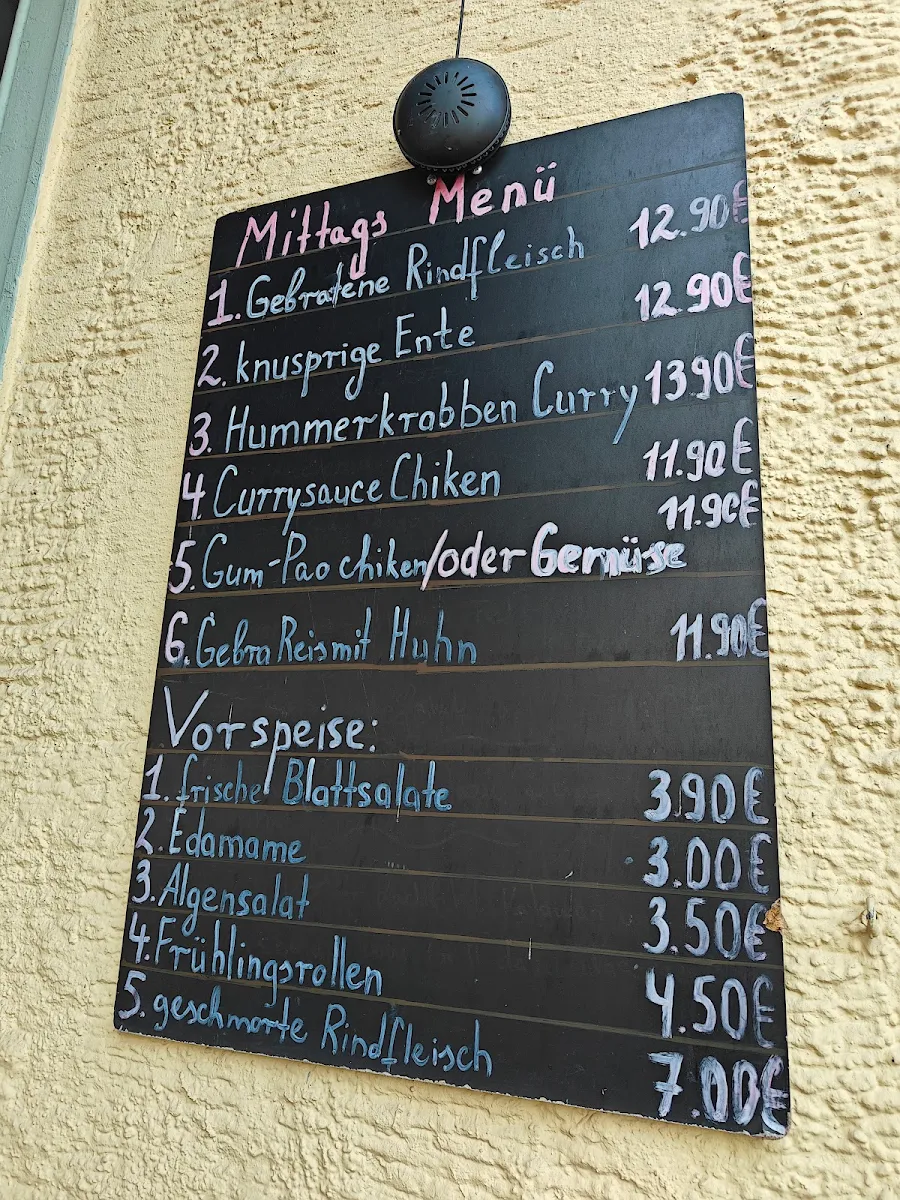 Mittags Menü
1. Gebratene Rindfleisch 12.90€
2. knusprige Ente 12.90€
3. Hummerkrabben Curry 13.90€
4 Currysauce Chiken 11.90€
5. Gum-Pao chiken/oder Gemüse 11.90€
6. Gebra Reis mit Huhn 11.90€
Vorspeise:
1. frische Blattsalate 3.90€
2. Edamame 3.00€
3. Algensalat 3.50€
4. Frühlingsrollen 4.50€
5. geschmorte Rindfleisch 7.00€